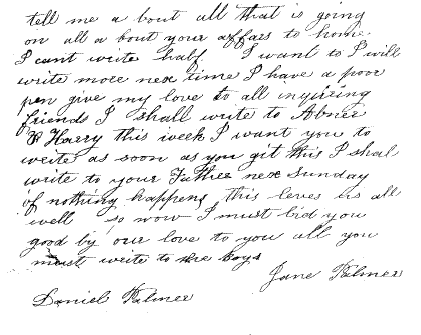 tell me a bout all that is going
on all a bout your affars to home
I cant write half I want to I will
write more nex time I have a poor
pen give my love to all inqiring
friends I shall write to Abner
& Harry this week I want you to
write as soon as you git this I shal
write to your Father nex Sunday
if nothing happens this leves us all
well so now I must bid you
good by our love to you all you
must write to the boys
Jane Palmer
Daniel Palmer